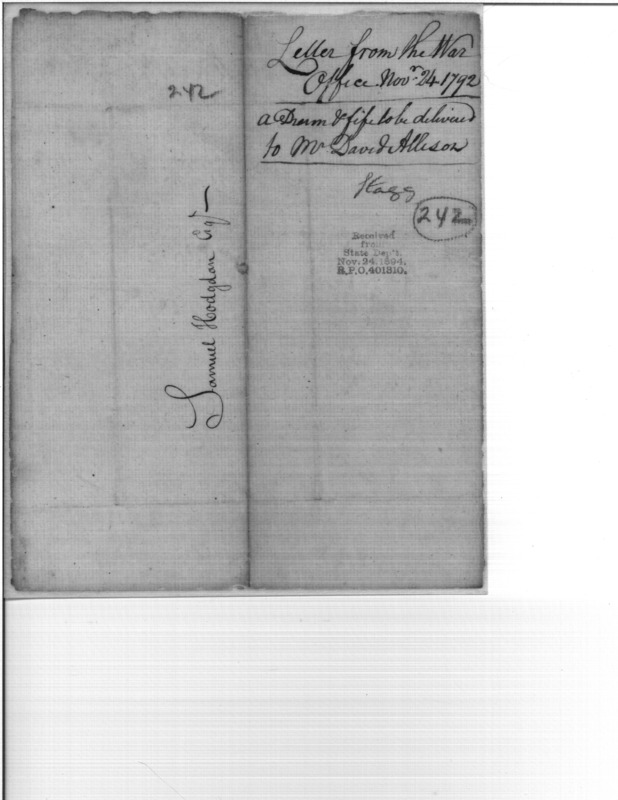 242
Samuel Hodgdon Esqr
Letter from the War
Office Novr. 24 1792
a Drum & fife to be delivered
to Mr David Allison
Stagg
242
Received
from
State Dep't.
Nov. 24. 1894.
R.P.O. 401310.